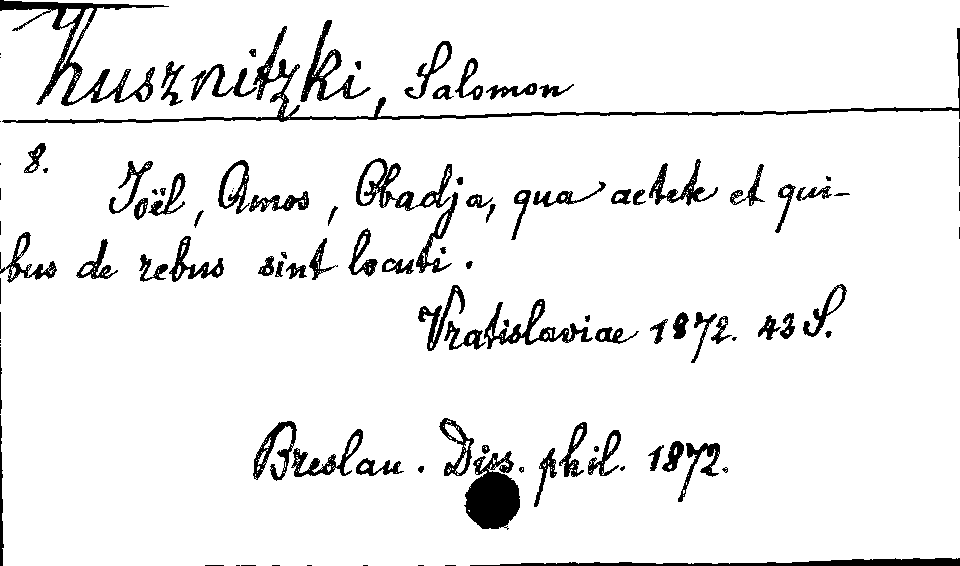 Kusznitzki, Salomon
8.
Joël, Amos, Obadja, qua aetete et qui-
bus de rebus sint locuti.
Vratislaviae 1872. 43 S.
Breslau. Diss. phil. 1872.